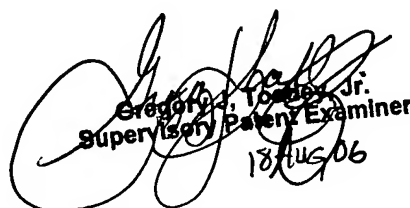 Gregory J, Jr.
Supervisory Patent Examiner
18 AUG 06